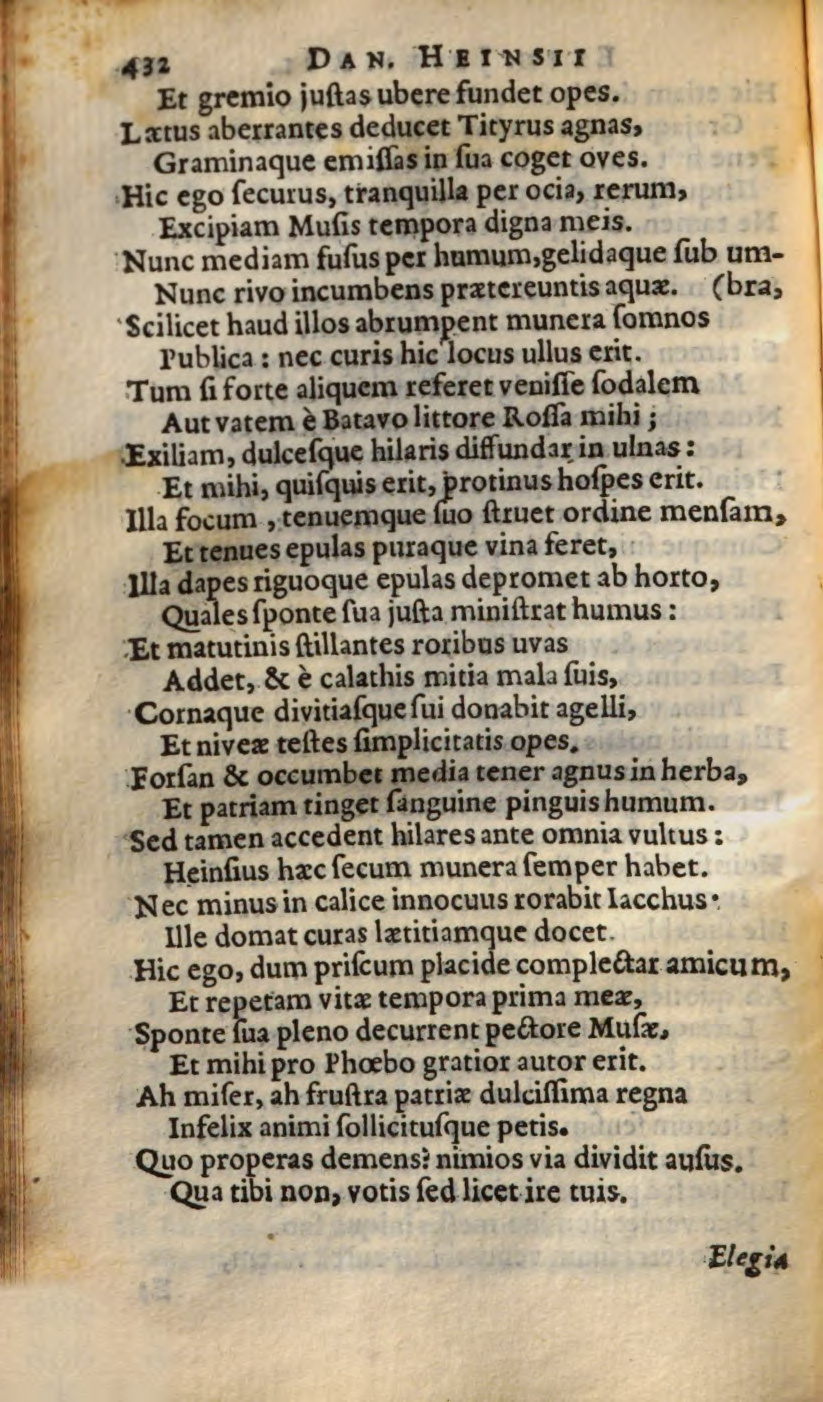 432 DAN. HEINSII
Et gremio juſtas ubere fundet opes.
Lætus aberrantes deducet Tityrus agnas,
Graminaque emiſſas in ſua coget oves.
Hic ego ſecurus, tranquilla per ocia, rerum,
Excipiam Muſis tempora digna meis.
Nunc mediam fuſus per humum, gelidaque ſub um-
Nunc rivo incumbens prætereuntis aquæ. (bra,
Scilicet haud illos abrumpent munera ſomnos
Publica : nec curis hic locus ullus erit.
Tum ſi forte aliquem referet veniſſe ſodalem
Aut vatem è Batavo littore Roſſa mihi ;
Exiliam, dulceſque hilaris diffundar in ulnas :
Et mihi, quiſquis erit, protinus hoſpes erit.
Illa focum , tenuemque ſuo ſtruet ordine menſam,
Et tenues epulas puraque vina feret,
Illa dapes riguoque epulas depromet ab horto,
Quales ſponte ſua juſta miniſtrat humus :
Et matutinis ſtillantes roribus uvas
Addet, & è calathis mitia mala ſuis,
Cornaque divitiaſque ſui donabit agelli,
Et niveæ teſtes ſimplicitatis opes.
Forſan & occumbet media tener agnus in herba,
Et patriam tinget ſanguine pinguis humum.
Sed tamen accedent hilares ante omnia vultus :
Heinſius hæc ſecum munera ſemper habet.
Nec minus in calice innocuus rorabit Iacchus.
Ille domat curas lætitiamque docet.
Hic ego, dum priſcum placide complectar amicum,
Et repetam vitæ tempora prima meæ,
Sponte ſua pleno decurrent pectore Muſæ,
Et mihi pro Phœbo gratior autor erit.
Ah miſer, ah fruſtra patriæ dulciſſima regna
Infelix animi ſollicituſque petis.
Quo properas demens? nimios via dividit auſus.
Qua tibi non, votis ſed licet ire tuis.
Elegia